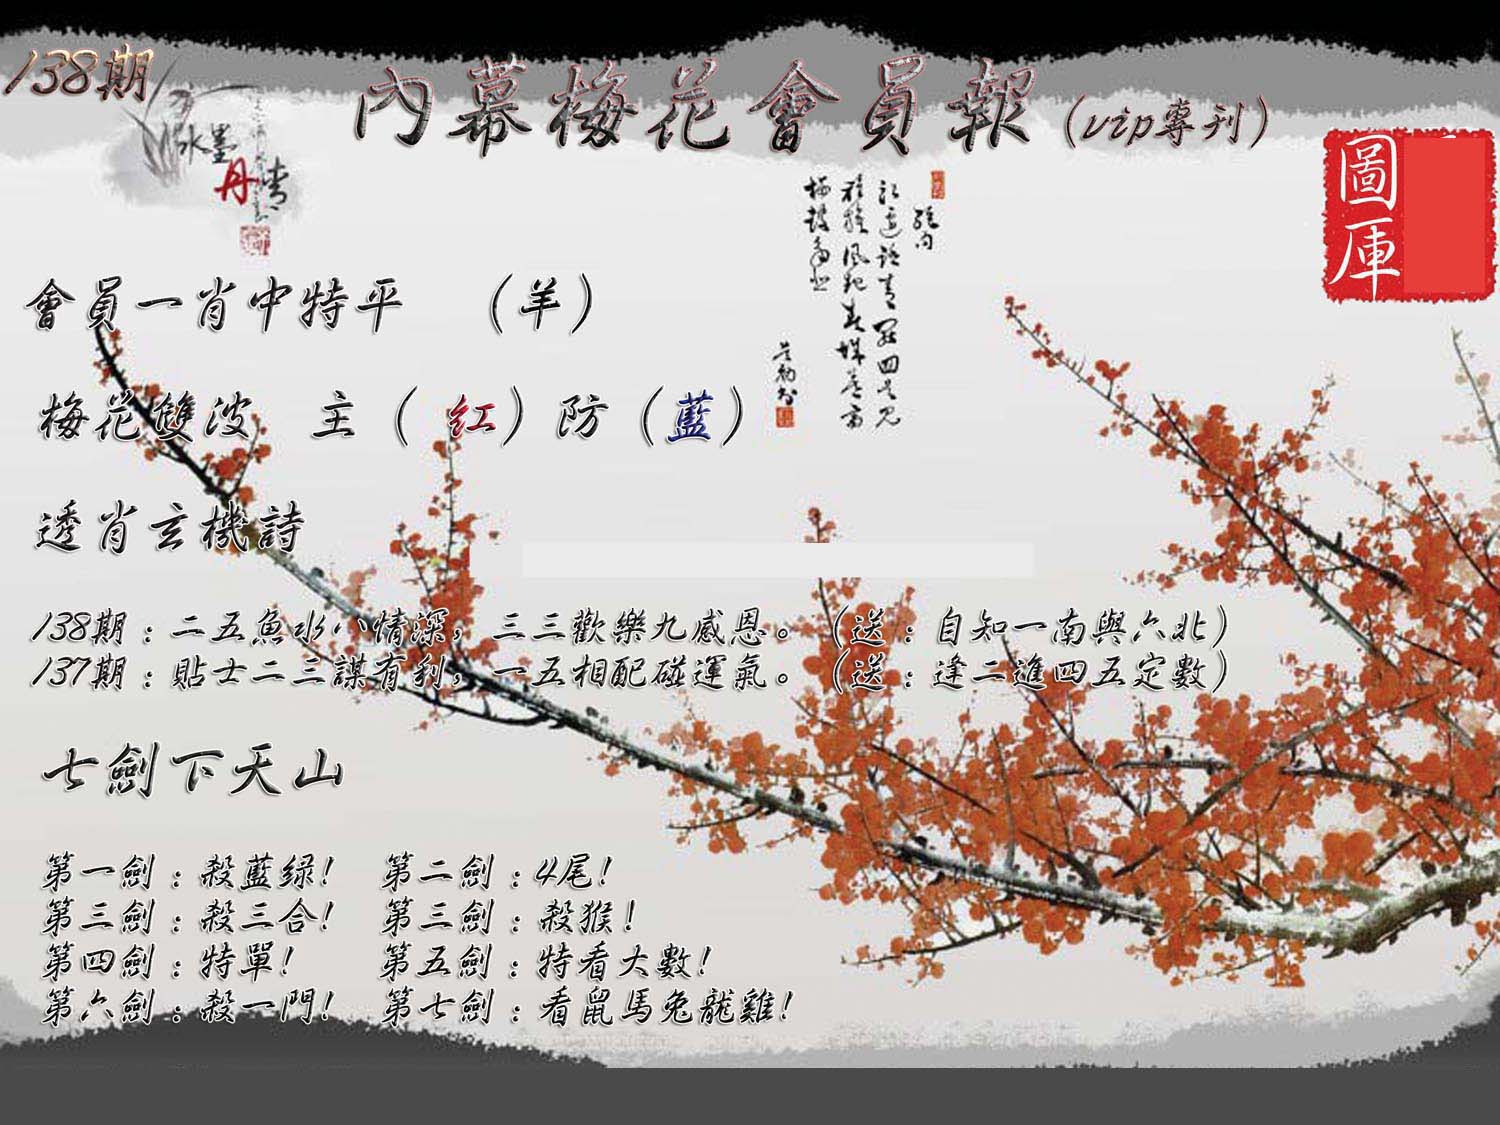 138期
內幕梅花會員報（vip專刊）
水墨
丹青
圖庫
會員一肖中特平 （羊）
梅花雙波 主（紅）防（藍）
透肖玄機詩
138期：二五魚水八情深，三三歡樂九感恩。（送：自知一南與六北）
137期：貼士二三謀有利，一五相配碰運氣。（送：逢二進四五定數）
七劍下天山
第一劍：殺藍绿！ 第二劍：4尾！
第三劍：殺三合！ 第三劍：殺猴！
第四劍：特單！ 第五劍：特看大數！
第六劍：殺一門！ 第七劍：看鼠馬兔龍雞！